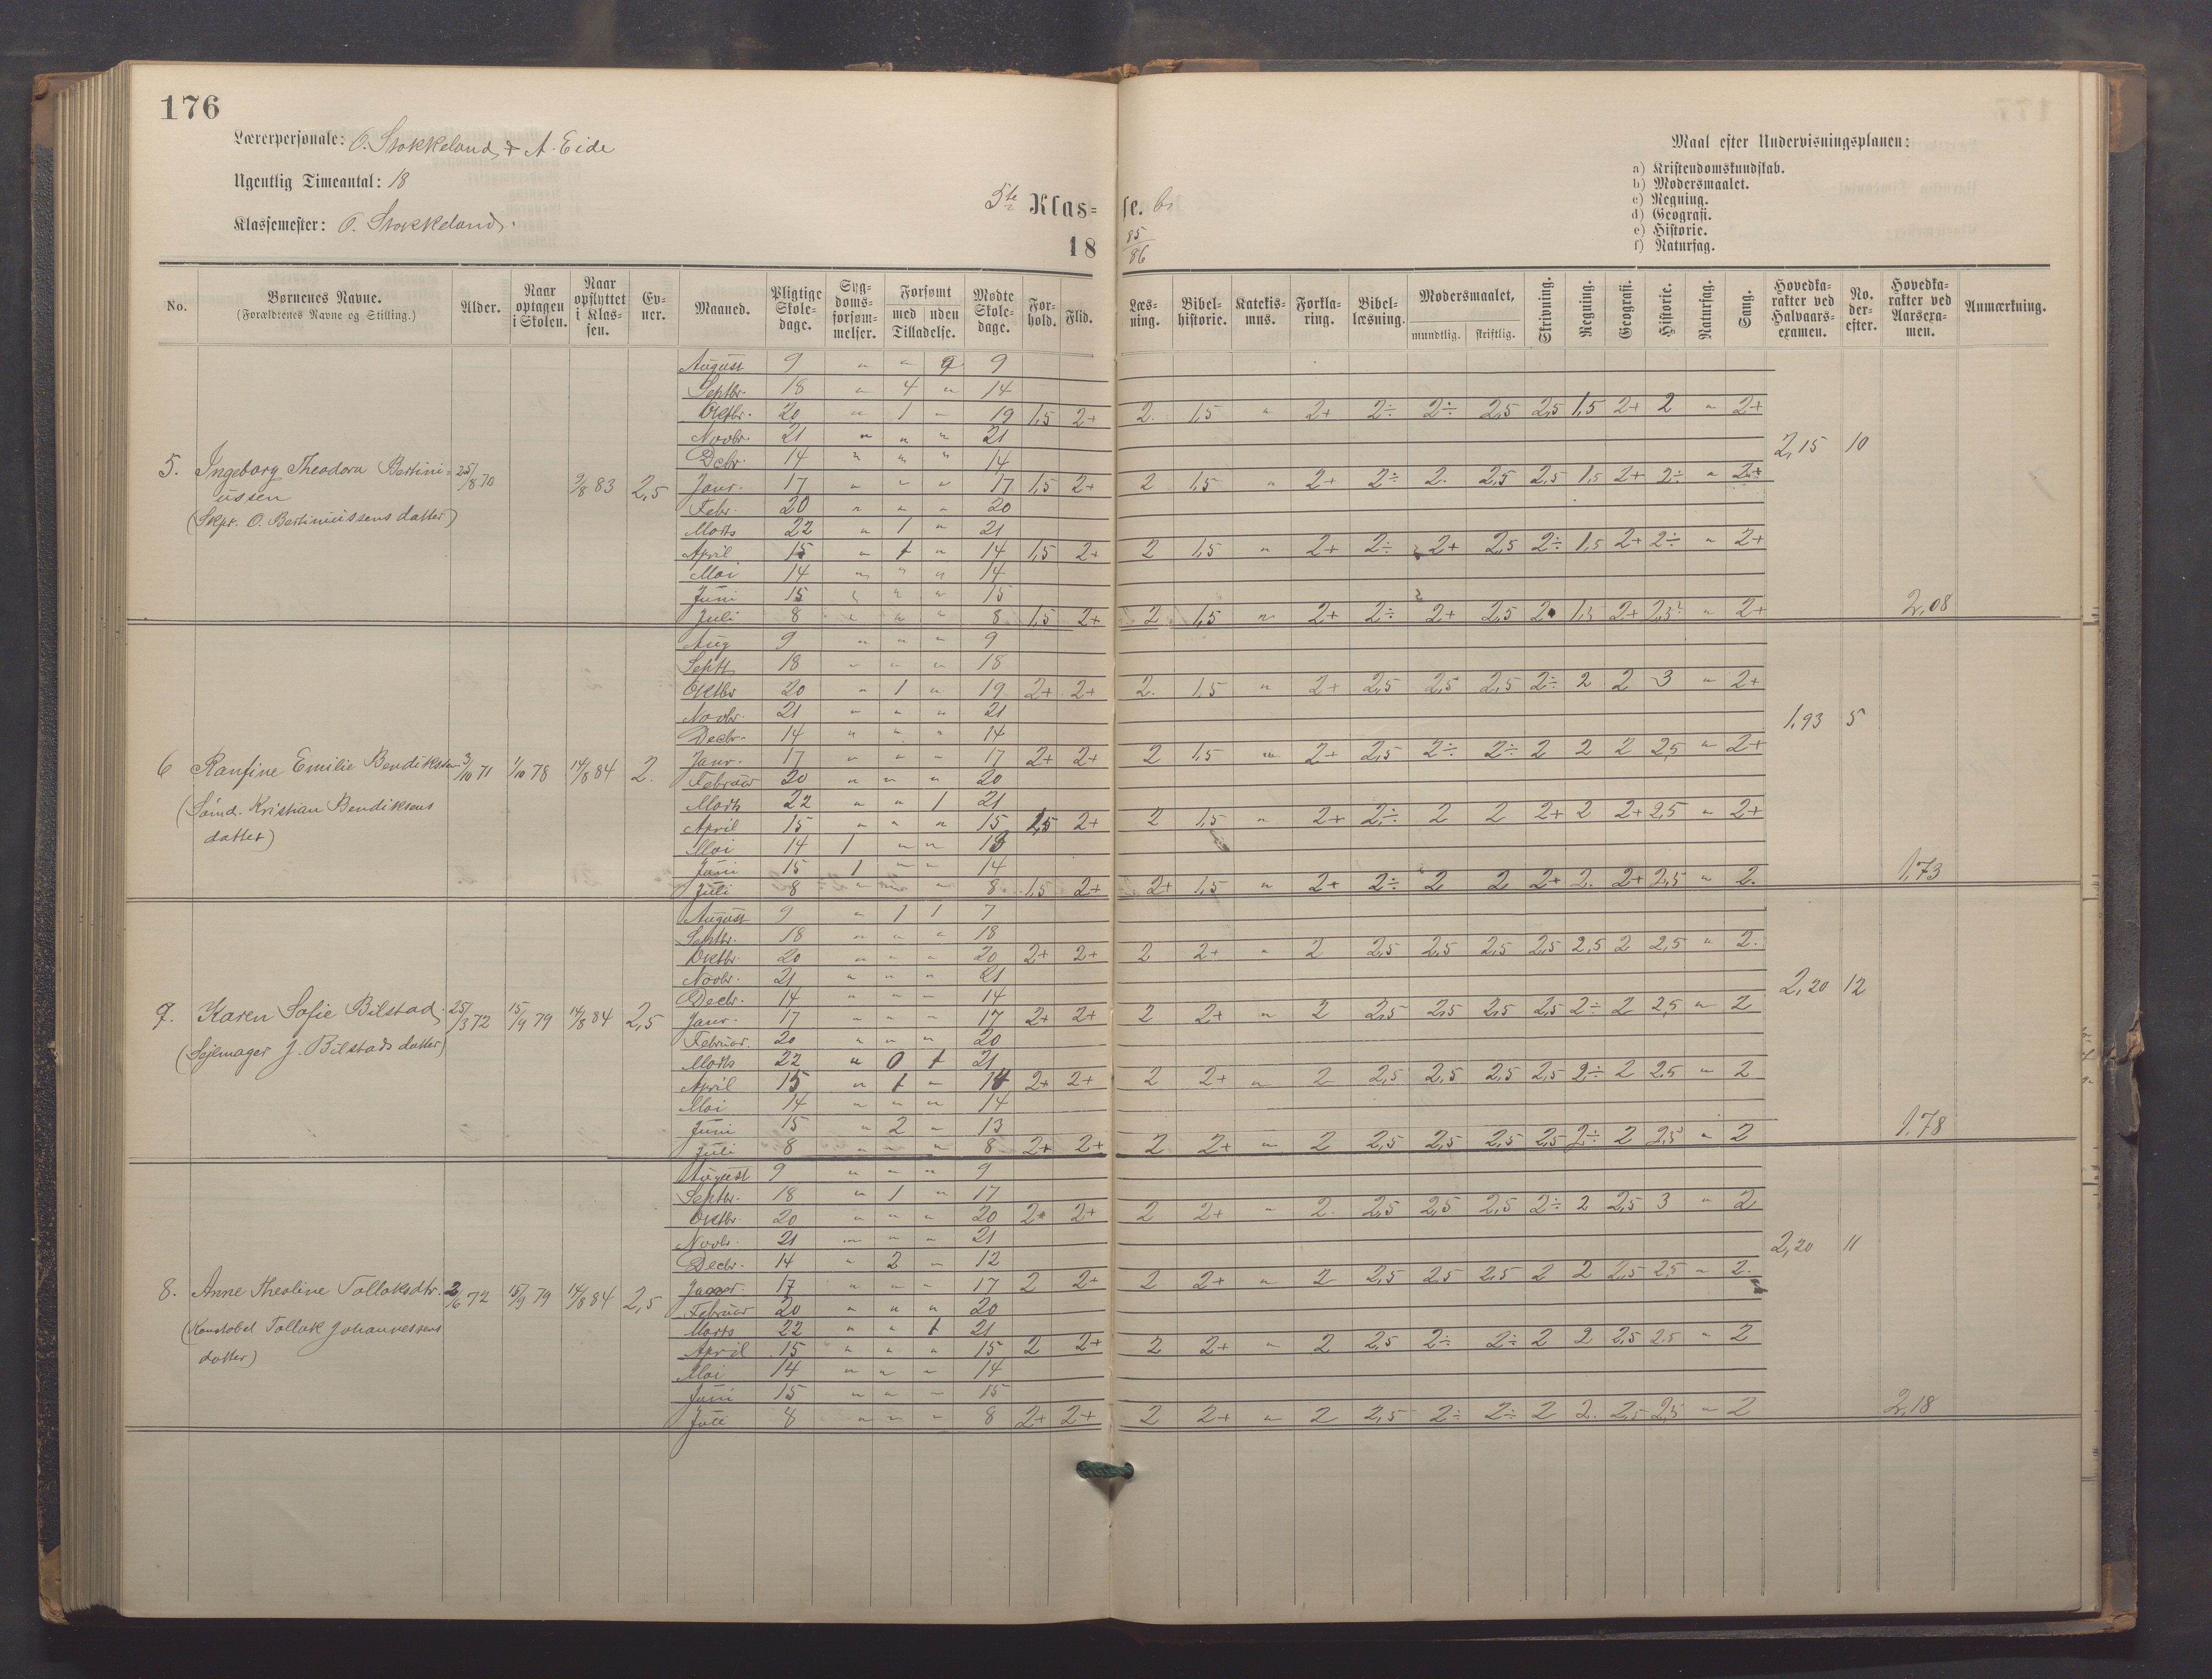 176
Lærerpersonale: O. Stokkeland & A. Eide
Ugentlig Timeantal: 18
Klassemester: O. Stokkeland.
5te Klasse. b.
18 85/86
Maal efter Undervisningsplanen:
a) Kristendomskundskab.
b) Modersmaalet.
c) Regning.
d) Geografi.
e) Historie.
f) Naturfag.
No. | Børnenes Navne. (Forældrenes Navne og Stilling.) | Alder. | Naar optagen i Skolen. | Naar opflyttet i Klassen. | Evner. | Maaned. | Pligtige Skoledage. | Sygdomsforsømmelser. | Forsømt med Tilladelse. | uden Tilladelse. | Mødte Skoledage. | Forhold. | Flid. | Læsning. | Bibelhistorie. | Katekismus. | Forklaring. | Bibellæsning. | Modersmaalet, mundtlig. | skriftlig. | Skrivning. | Regning. | Geografi. | Historie. | Naturfag. | Sang. | Hovedkarakter ved Halvaarsexamen. | No. derefter. | Hovedkarakter ved Aarsexamen. | Anmærkning.
5. Ingeborg Theodora Bertiniussen 25/8 70 | 83 2,5
(Skpr. O. Bertiniussens datter)
August 9 " " 9
Septbr. 18 " 4 " 14
Oktbr. 20 " 1 " 19 1,5 2+ | 2. 1,5 " 2+ 2÷ 2÷ 2,5 2,5 1,5 2+ 2 " 2+
Novbr. 21 " " " 21
2,15 10
Decbr. 14 " " " 14
Janr. 17 " " " 17 1,5 2+ | 2 1,5 " 2+ 2÷ 2. 2,5 2,5 1,5 2+ 2÷ " 2+
Febr. 20 " " " 20
Marts 22 " 1 " 21
April 15 " 1 " 14 1,5 2+ | 2 1,5 " 2+ 2÷ 2+ 2,5 2÷ 1,5 2+ 2÷ " 2+
Mai 14 " " " 14
Juni 15 " " " 15
Juli 8 " " " 8 1,5 2+ | 2 1,5 " 2+ 2÷ 2+ 2,5 2 1,5 2+ " 2+
2,08
6 Ranfine Emilie Bendiksen 3/10 71 1/10 78 14/8 84 2.
(Kristian Bendiksens
datter)
Aug 9 " " " 9
Septt. 18 " " " 18
Oktbr 20 " 1 " 19 2+ 2+ | 2. 1,5 " 2+ 2,5 2,5 2,5 2÷ 2 2 3 " 2+
Novbr. 21 " " " 21
1,93 5
Decbr. 14 " " " 14
Janr. 17 " " " 17 2+ 2+ | 2 1,5 " 2+ 2,5 2÷ 2÷ 2 2 2 2,5 " 2+
Februar 20 " " " 20
Marts 22 " " 1 21
April 15 " " " 15 1,5 2+ | 2 1,5 " 2+ 2÷ 2 2 2+ 2 2+ 2,5 " 2+
Mai 14 1 " " 13
Juni 15 1 " " 14
Juli 8 " " " 8 1,5 2+ | 2+ 1,5 " 2+ 2÷ 2 2 2+ 2. 2+ 2,5 " 2.
1,73
7. Karen Sofie Bilstad. 25/3 72 15/9 79 14/8 84 2,5
(Sejlmager J. Bilstads datter)
August 9 " 1 1 7
Septbr. 18 " " " 18
Oktbr. 20 " " " 20 2+ 2+ | 2 2+ " 2 2,5 2,5 2,5 2,5 2,5 2 2,5 " 2.
Novbr. 21 " " " 21
2,20 12
Decbr. 14 " " " 14
Janr. 17 " " " 17 2+ 2+ | 2 2+ " 2 2,5 2,5 2,5 2,5 2÷ 2 2,5 " 2
Februar. 20 " " " 20
Marts 22 " 0 1 21
April 15 " 1 " 14 2+ 2+ | 2 2+ " 2 2,5 2,5 2,5 2,5 2÷ 2 2,5 " 2
Mai 14 " " " 14
Juni 15 " 2 " 13
Juli 8 " " " 8 2+ 2+ | 2 2+ " 2 2,5 2,5 2,5 2,5 2÷ 2 2,5 " 2
1,78
8. Anne Theoline Tollaksdtr. 2/6 72 15/9 79 14/8 84 2,5
(Konstabel Tollak Johannessens
datter)
August 9 " " " 9
Septbr. 18 " 1 " 17
Oktbr. 20 " " " 20 2 2+ | 2 2+ " 2. 2,5 2,5 2,5 2÷ 2 2,5 3 " 2
Novbr. 21 " " " 21
2,20 11
Decbr. 14 " 2 " 12
Januar. 17 " " " 17 2 2+ | 2 2+ " 2 2,5 2,5 2,5 2 2 2,5 2,5 " 2.
Februar 20 " " " 20
Marts 22 " " 1 21
April 15 " " " 15 2 2+ | 2 2+ " 2 2,5 2÷ 2÷ 2 2 2,5 2,5 " 2
Mai 14 " " " 14
Juni 15 " " " 15
Juli 8 " " " 8 2+ 2+ | 2 2+ " 2 2,5 2÷ 2÷ 2 2. 2,5 2,5 " 2
2,18